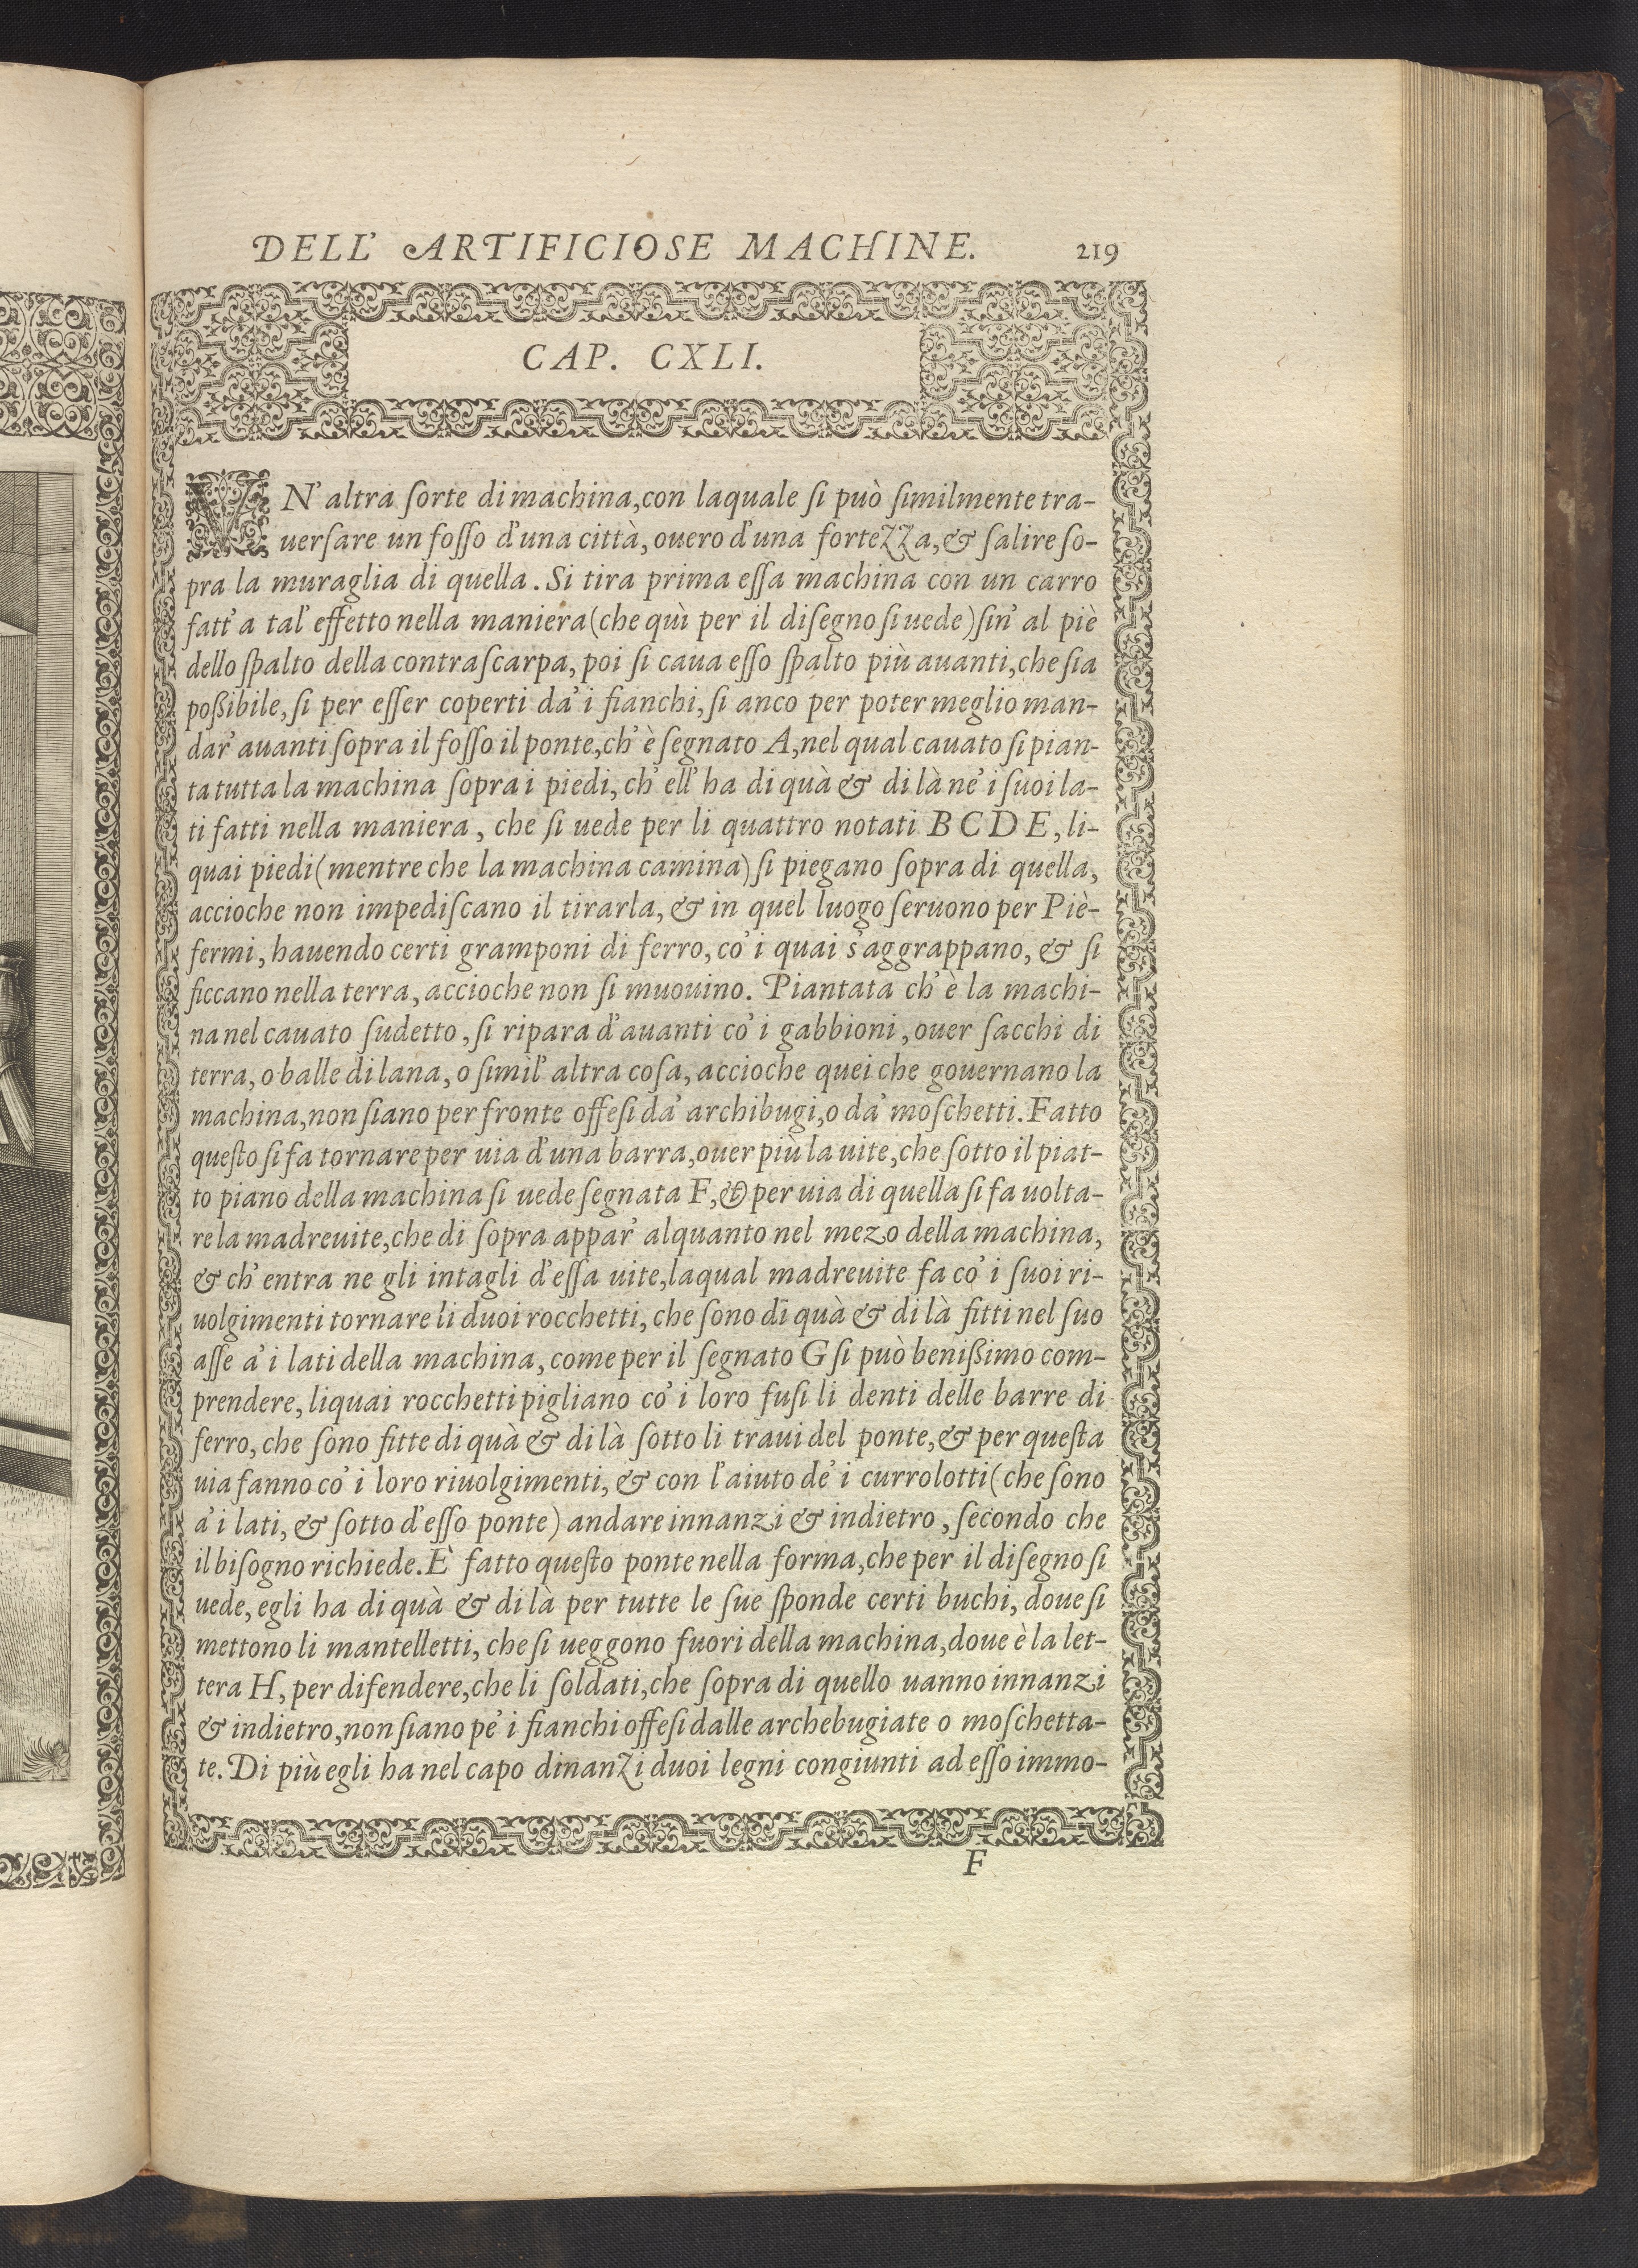 DELL' ARTIFICIOSE MACHINE. 219
CAP. CXLI.
VN' altra ſorte di machina, con laquale ſi può ſimilmente tra-
uerſare un foſſo d'una città, ouero d'una fortezza, & ſalire ſo-
pra la muraglia di quella. Si tira prima eſſa machina con un carro
fatt' a tal' effetto nella maniera (che quì per il diſegno ſi uede) ſin' al piè
dello ſpalto della contraſcarpa, poi ſi caua eſſo ſpalto più auanti, che ſia
poßibile, ſi per eſſer coperti da' i fianchi, ſi anco per poter meglio man-
dar' auanti ſopra il foſſo il ponte, ch' è ſegnato A, nel qual cauato ſi pian-
ta tutta la machina ſopra i piedi, ch' ell' ha di quà & di là ne' i ſuoi la-
ti fatti nella maniera, che ſi uede per li quattro notati B C D E, li-
quai piedi (mentre che la machina camina) ſi piegano ſopra di quella,
accioche non impediſcano il tirarla, & in quel luogo ſeruono per Piè-
fermi, hauendo certi gramponi di ferro, co' i quai s'aggrappano, & ſi
ficcano nella terra, accioche non ſi muouino. Piantata ch' è la machi-
na nel cauato ſudetto, ſi ripara d'auanti co' i gabbioni, ouer ſacchi di
terra, o balle di lana, o ſimil' altra coſa, accioche quei che gouernano la
machina, non ſiano per fronte offeſi da' archibugi, o da' moſchetti. Fatto
queſto ſi fa tornare per uia d'una barra, ouer più la uite, che ſotto il piat-
to piano della machina ſi uede ſegnata F, & per uia di quella ſi fa uolta-
re la madreuite, che di ſopra appar' alquanto nel mezo della machina,
& ch' entra ne gli intagli d'eſſa uite, laqual madreuite fa co' i ſuoi ri-
uolgimenti tornare li duoi rocchetti, che ſono di quà & di là fitti nel ſuo
aſſe a' i lati della machina, come per il ſegnato G ſi può benißimo com-
prendere, liquai rocchetti pigliano co' i loro fuſi li denti delle barre di
ferro, che ſono fitte di quà & di là ſotto li traui del ponte, & per queſta
uia fanno co' i loro riuolgimenti, & con l'aiuto de' i currolotti (che ſono
a' i lati, & ſotto d'eſſo ponte) andare innanzi & indietro, ſecondo che
il biſogno richiede. È fatto queſto ponte nella forma, che per il diſegno ſi
uede, egli ha di quà & di là per tutte le ſue ſponde certi buchi, doue ſi
mettono li mantelletti, che ſi ueggono fuori della machina, doue è la let-
tera H, per difendere, che li ſoldati, che ſopra di quello uanno innanzi
& indietro, non ſiano pe' i fianchi offeſi dalle archebugiate o moſchetta-
te. Di più egli ha nel capo dinanzi duoi legni congiunti ad eſſo immo-
F